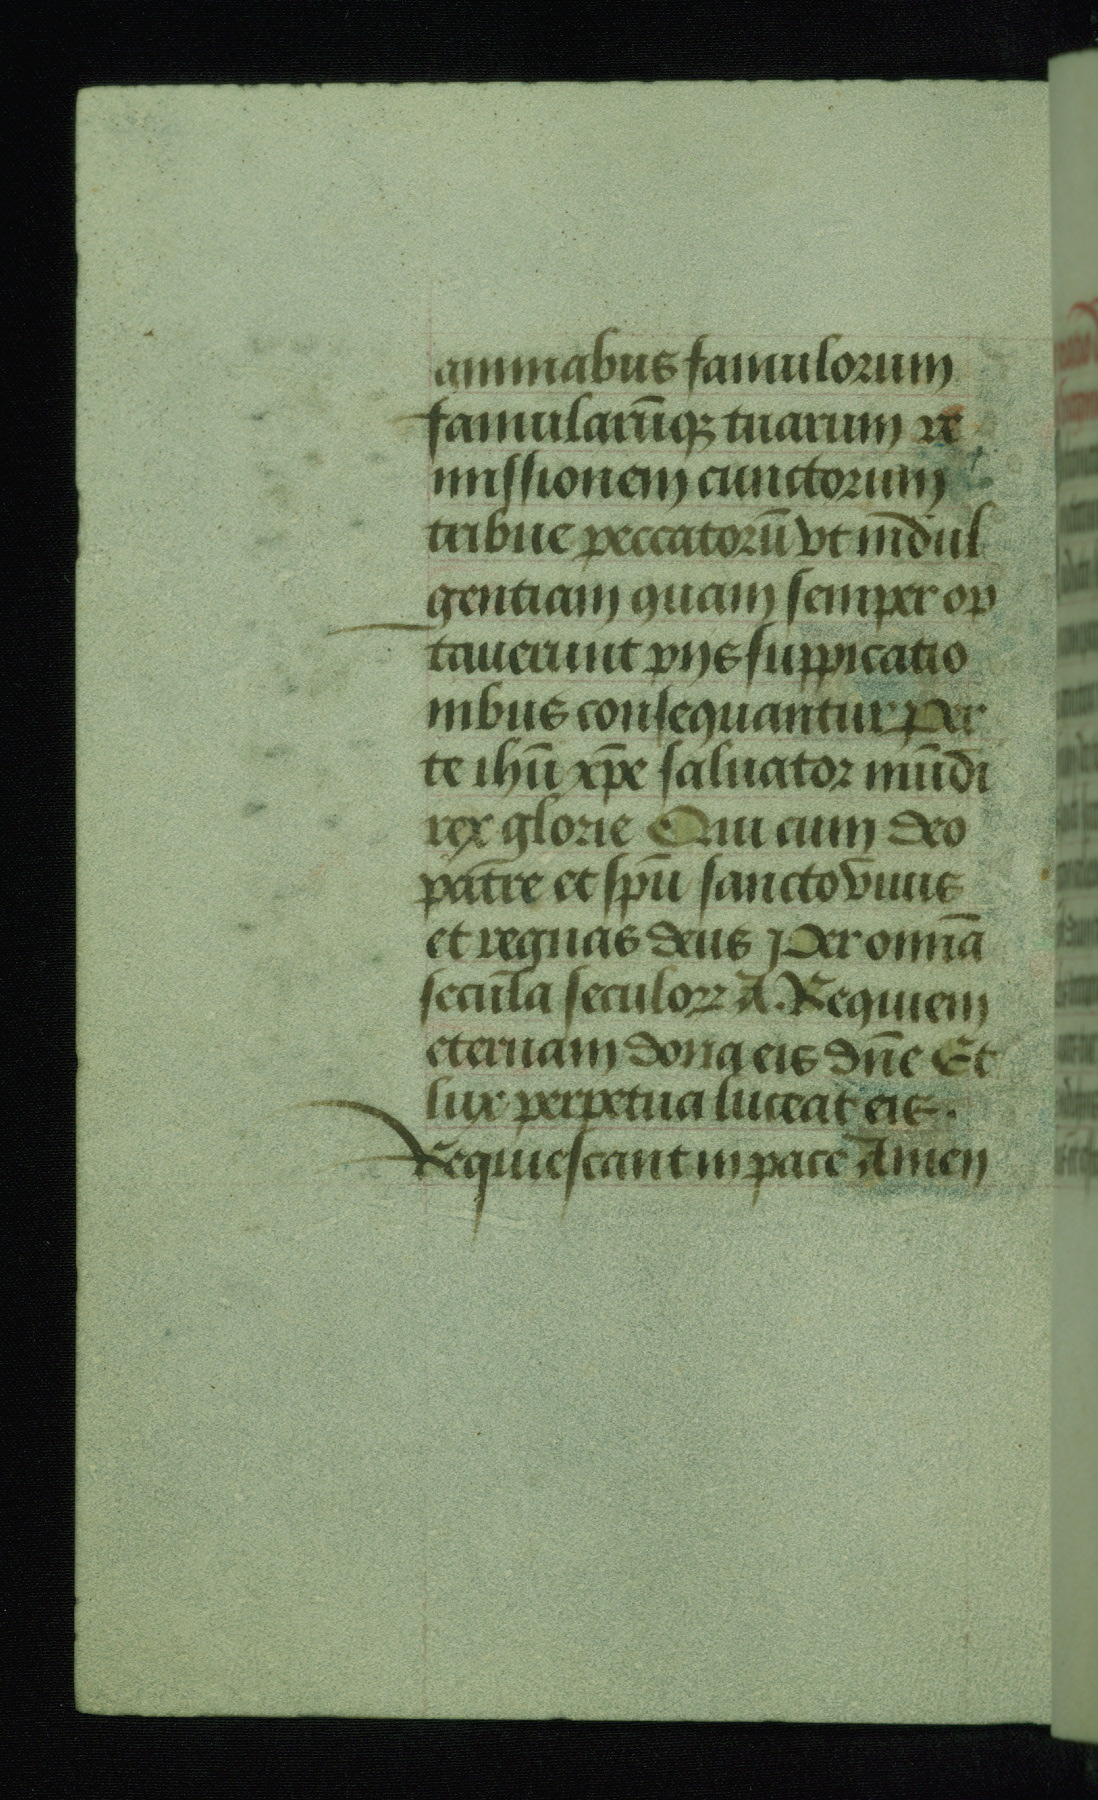 animabus famulorum
famularūqꝫ tuarum re
missionem cunctorum
tribue peccatorū vt indul
gentiam quam semper op
tauerunt pijs supplicatio
nibus consequantur Per
te ihū xp̄e saluator mūdi
rex glorie Qui cum deo
patre et sp̄u sancto viuis
et regnas deus Per omīa
secūla seculoꝝ A. Requiem
eternam dona eis dn̄e Et
lux perpetua luceat eis.
Requiescant in pace Amen